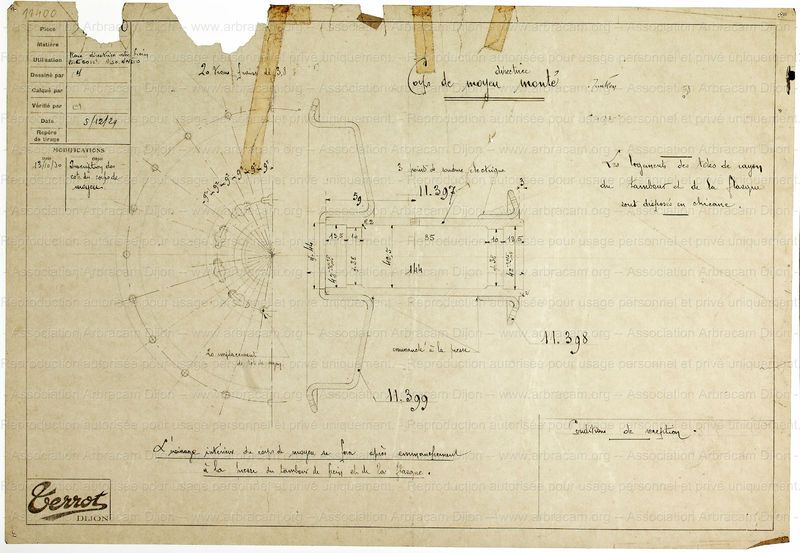 11400
Pièce
Matière
Utilisation
Dessiné par
Calqué par
Vérifié par
Date 5/12/29
Repère de tirage
MODIFICATIONS
13/10/30 Inscription des
cotes du corps de
moyeu.
directrice
Corps de moyeu monté
3 points de soudure électrique
11.397
Les logements des têtes de rayon
du tambour et de la flasque
sont disposés en chicane.
59
3
R.2
13,5
14
85
10
13,5
φ.44
φ.38
40,5
144
φ.38
11.398
emmanché à la presse
20 emplacements
de tête de rayon
11.399
Conditions de réception.
L'alésage intérieur du corps de moyeu se fera après emmanchement
à la presse du tambour de frein et de la flasque.
Terrot
DIJON
Reproduction autorisée pour usage personnel et privé uniquement.
www.arbracam.org -- Association Arbracam Dijon